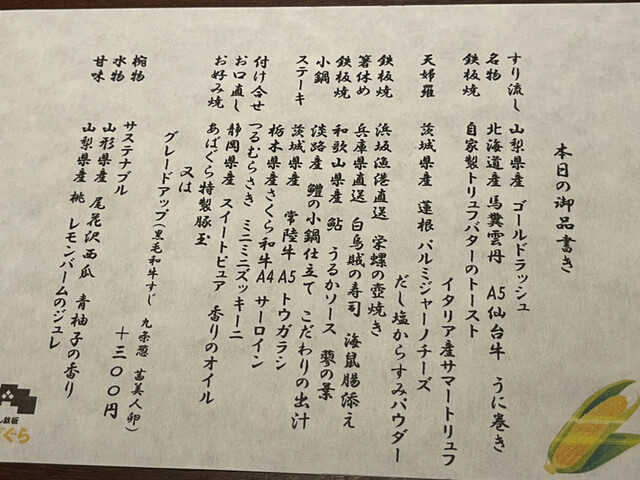 本日の御品書き
すり流し 山梨県産 ゴールドラッシュ
名物 北海道産 馬糞雲丹 A5仙台牛 うに巻き
鉄板焼 自家製トリュフバターのトースト
イタリア産サマートリュフ
天婦羅 茨城県産 蓮根 パルミジャーノチーズ
だし塩からすみパウダー
鉄板焼 浜坂漁港直送 栄螺の壺焼き
箸休め 兵庫県直送 白烏賊の寿司 海鼠腸添え
鉄板焼 和歌山県産 鮎 うるかソース 蓼の葉
小鍋 淡路産 鱧の小鍋仕立て こだわりの出汁
ステーキ 茨城県産 常陸牛 A5トウガラシ
栃木県産さくら和牛A4 サーロイン
付け合せ つるむらさき ミニミニズッキーニ
お口直し 静岡県産 スイートピュア 香りのオイル
お好み焼 あばぐら特製豚玉
又は
グレードアップ(黒毛和牛すじ 九条葱 苗美人卵)
+300円
椀物 サステナブル
水物 山形県産 尾花沢西瓜 青柚子の香り
甘味 山梨県産 桃 レモンバームのジュレ
し鉄板
ぐら